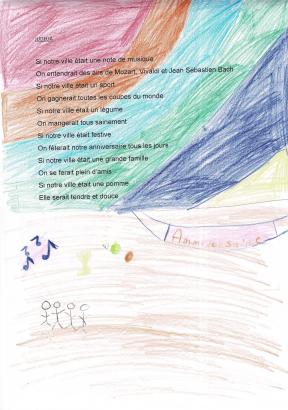 Si notre ville était une note de musique
On entendrait des airs de Mozart, Vivaldi et Jean Sébastien Bach
Si notre ville était un sport
On gagnerait toutes les coupes du monde
Si notre ville était un légume
On mangerait tous sainement
Si notre ville était festive
On fêterait notre anniversaire tous les jours
Si notre ville était une grande famille
On se ferait plein d'amis
Si notre ville était une pomme
Elle serait tendre et douce